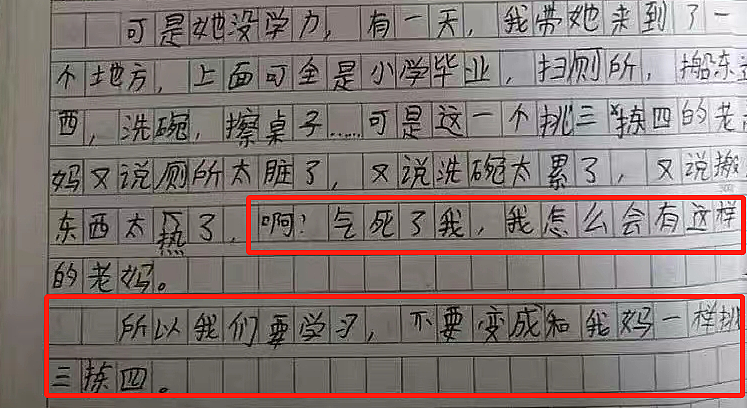 可是她没学力，有一天，我带她来到了一
个地方，上面可全是小学毕业，扫厕所，搬东
西，洗碗，擦桌子……可是这一个挑三拣四的老
妈又说厕所太脏了，又说洗碗太累了，又说搬
东西太热了，啊！气死了我，我怎么会有这样
的老妈。
所以我们要学习，不要变成和我妈一样挑
三拣四。